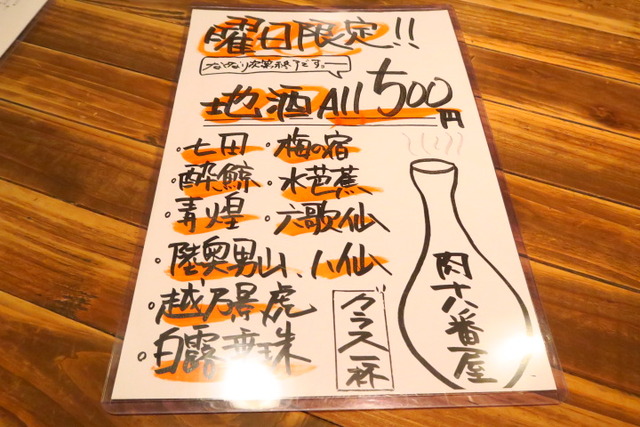 曜日限定!!
なくなり次第終了です。
地酒 All 500円
・七田
・梅の宿
・酔鯨
・水芭蕉
・青煌
・六歌仙
・陸奥男山
八仙
・越乃景虎
・白露垂珠
グラス一杯
肉十八番屋